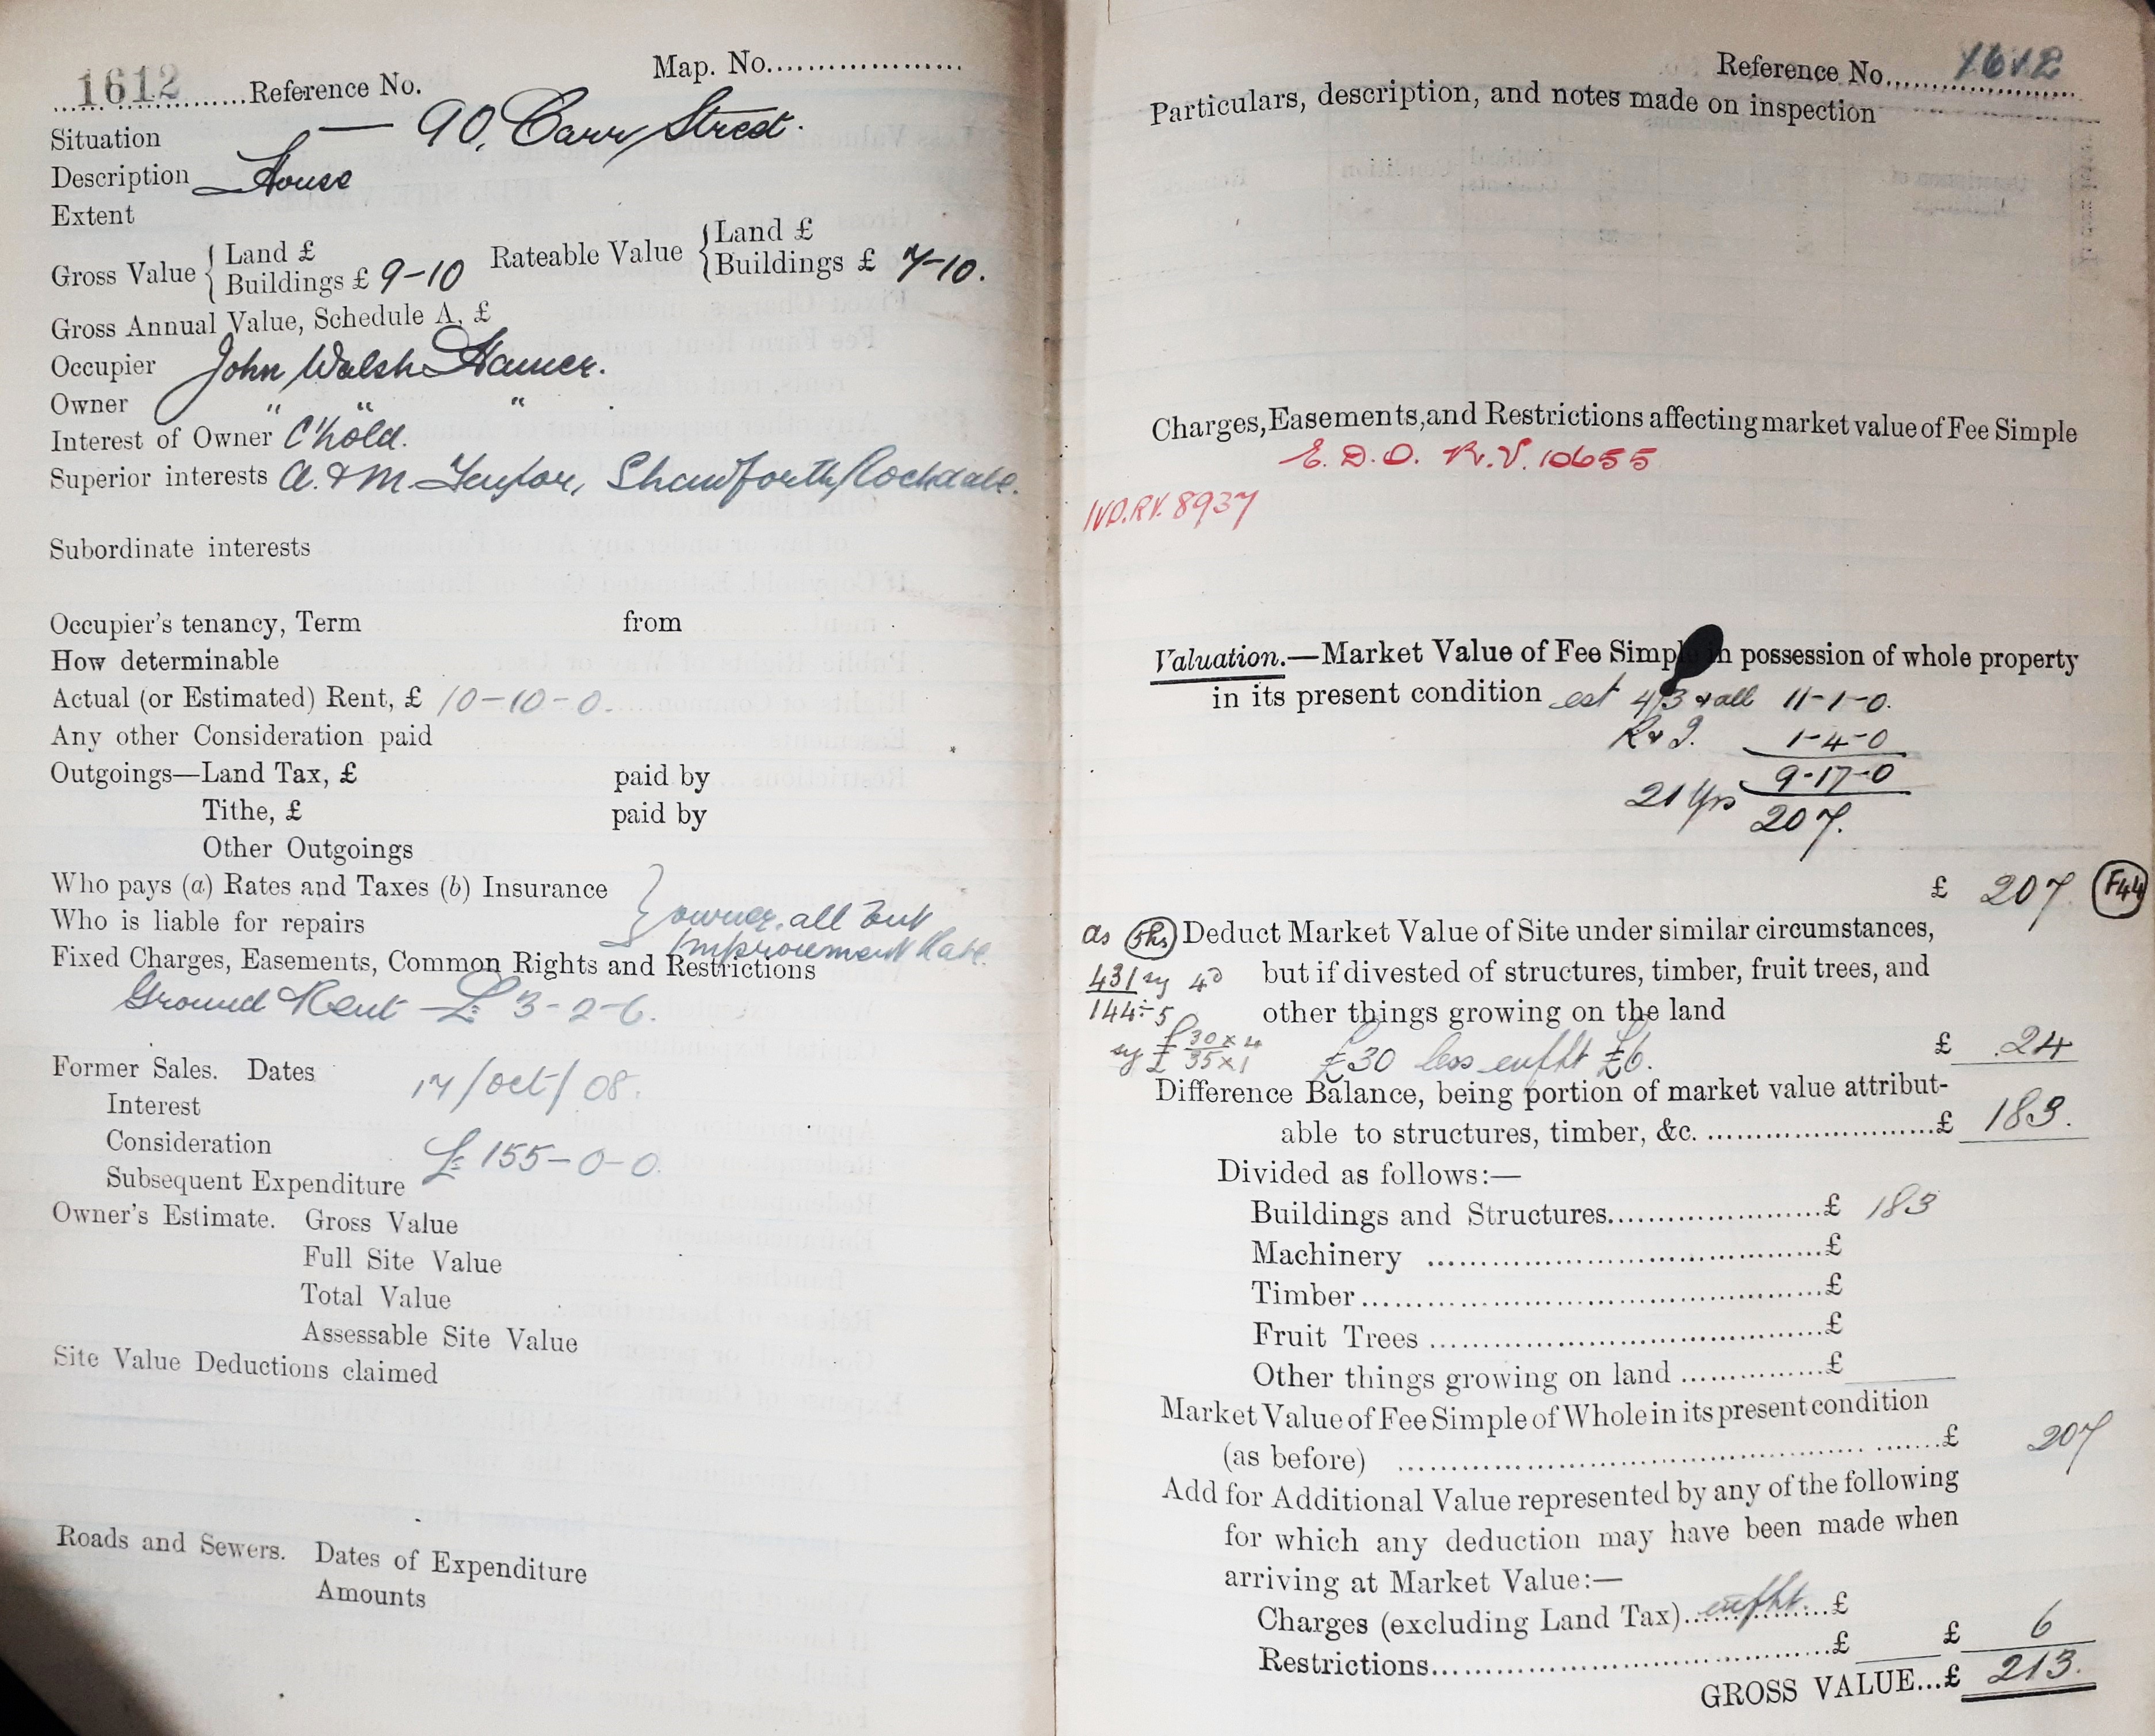 1612 Reference No. Map. No.
Situation — 90, Carr Street.
Description House
Extent
Gross Value { Land £
Buildings £ 9-10
Rateable Value { Land £
Buildings £ 7-10.
Gross Annual Value, Schedule A, £
Occupier John Walsh Hamer.
Owner " " "
Interest of Owner C'hold.
Superior interests A. & M. Taylor, Shawforth, Rochdale.
Subordinate interests
Occupier's tenancy, Term from
How determinable
Actual (or Estimated) Rent, £ 10-10-0.
Any other Consideration paid
Outgoings—Land Tax, £ paid by
Tithe, £ paid by
Other Outgoings
Who pays (a) Rates and Taxes (b) Insurance
Who is liable for repairs } owner, all but
Improvement Rate.
Fixed Charges, Easements, Common Rights and Restrictions
Ground Rent £ 3-2-6.
Former Sales. Dates 17/Oct/08.
Interest
Consideration £ 155-0-0.
Subsequent Expenditure
Owner's Estimate. Gross Value
Full Site Value
Total Value
Assessable Site Value
Site Value Deductions claimed
Roads and Sewers. Dates of Expenditure
Amounts
Reference No. 1612
Particulars, description, and notes made on inspection
Charges, Easements, and Restrictions affecting market value of Fee Simple
E.D.O. R.V. 10655
IVD.RV. 8937
Valuation.—Market Value of Fee Simple in possession of whole property
in its present condition est 4/3 & all 11-1-0.
R & I. 1-4-0
9-17-0
21 Yrs 207.
£ 207. F44
as 5hs Deduct Market Value of Site under similar circumstances,
431 sy 4d but if divested of structures, timber, fruit trees, and
144÷5 other things growing on the land
sy £ 30 x 4
£ 35 x 1
£30 less enfht £6. £ 24
Difference Balance, being portion of market value attribut-
able to structures, timber, &c. £ 183.
Divided as follows:—
Buildings and Structures £ 183
Machinery £
Timber £
Fruit Trees £
Other things growing on land £
Market Value of Fee Simple of Whole in its present condition
(as before) £ 207
Add for Additional Value represented by any of the following
for which any deduction may have been made when
arriving at Market Value:—
Charges (excluding Land Tax) enfht. £
Restrictions £ £ 6
GROSS VALUE...£ 213.